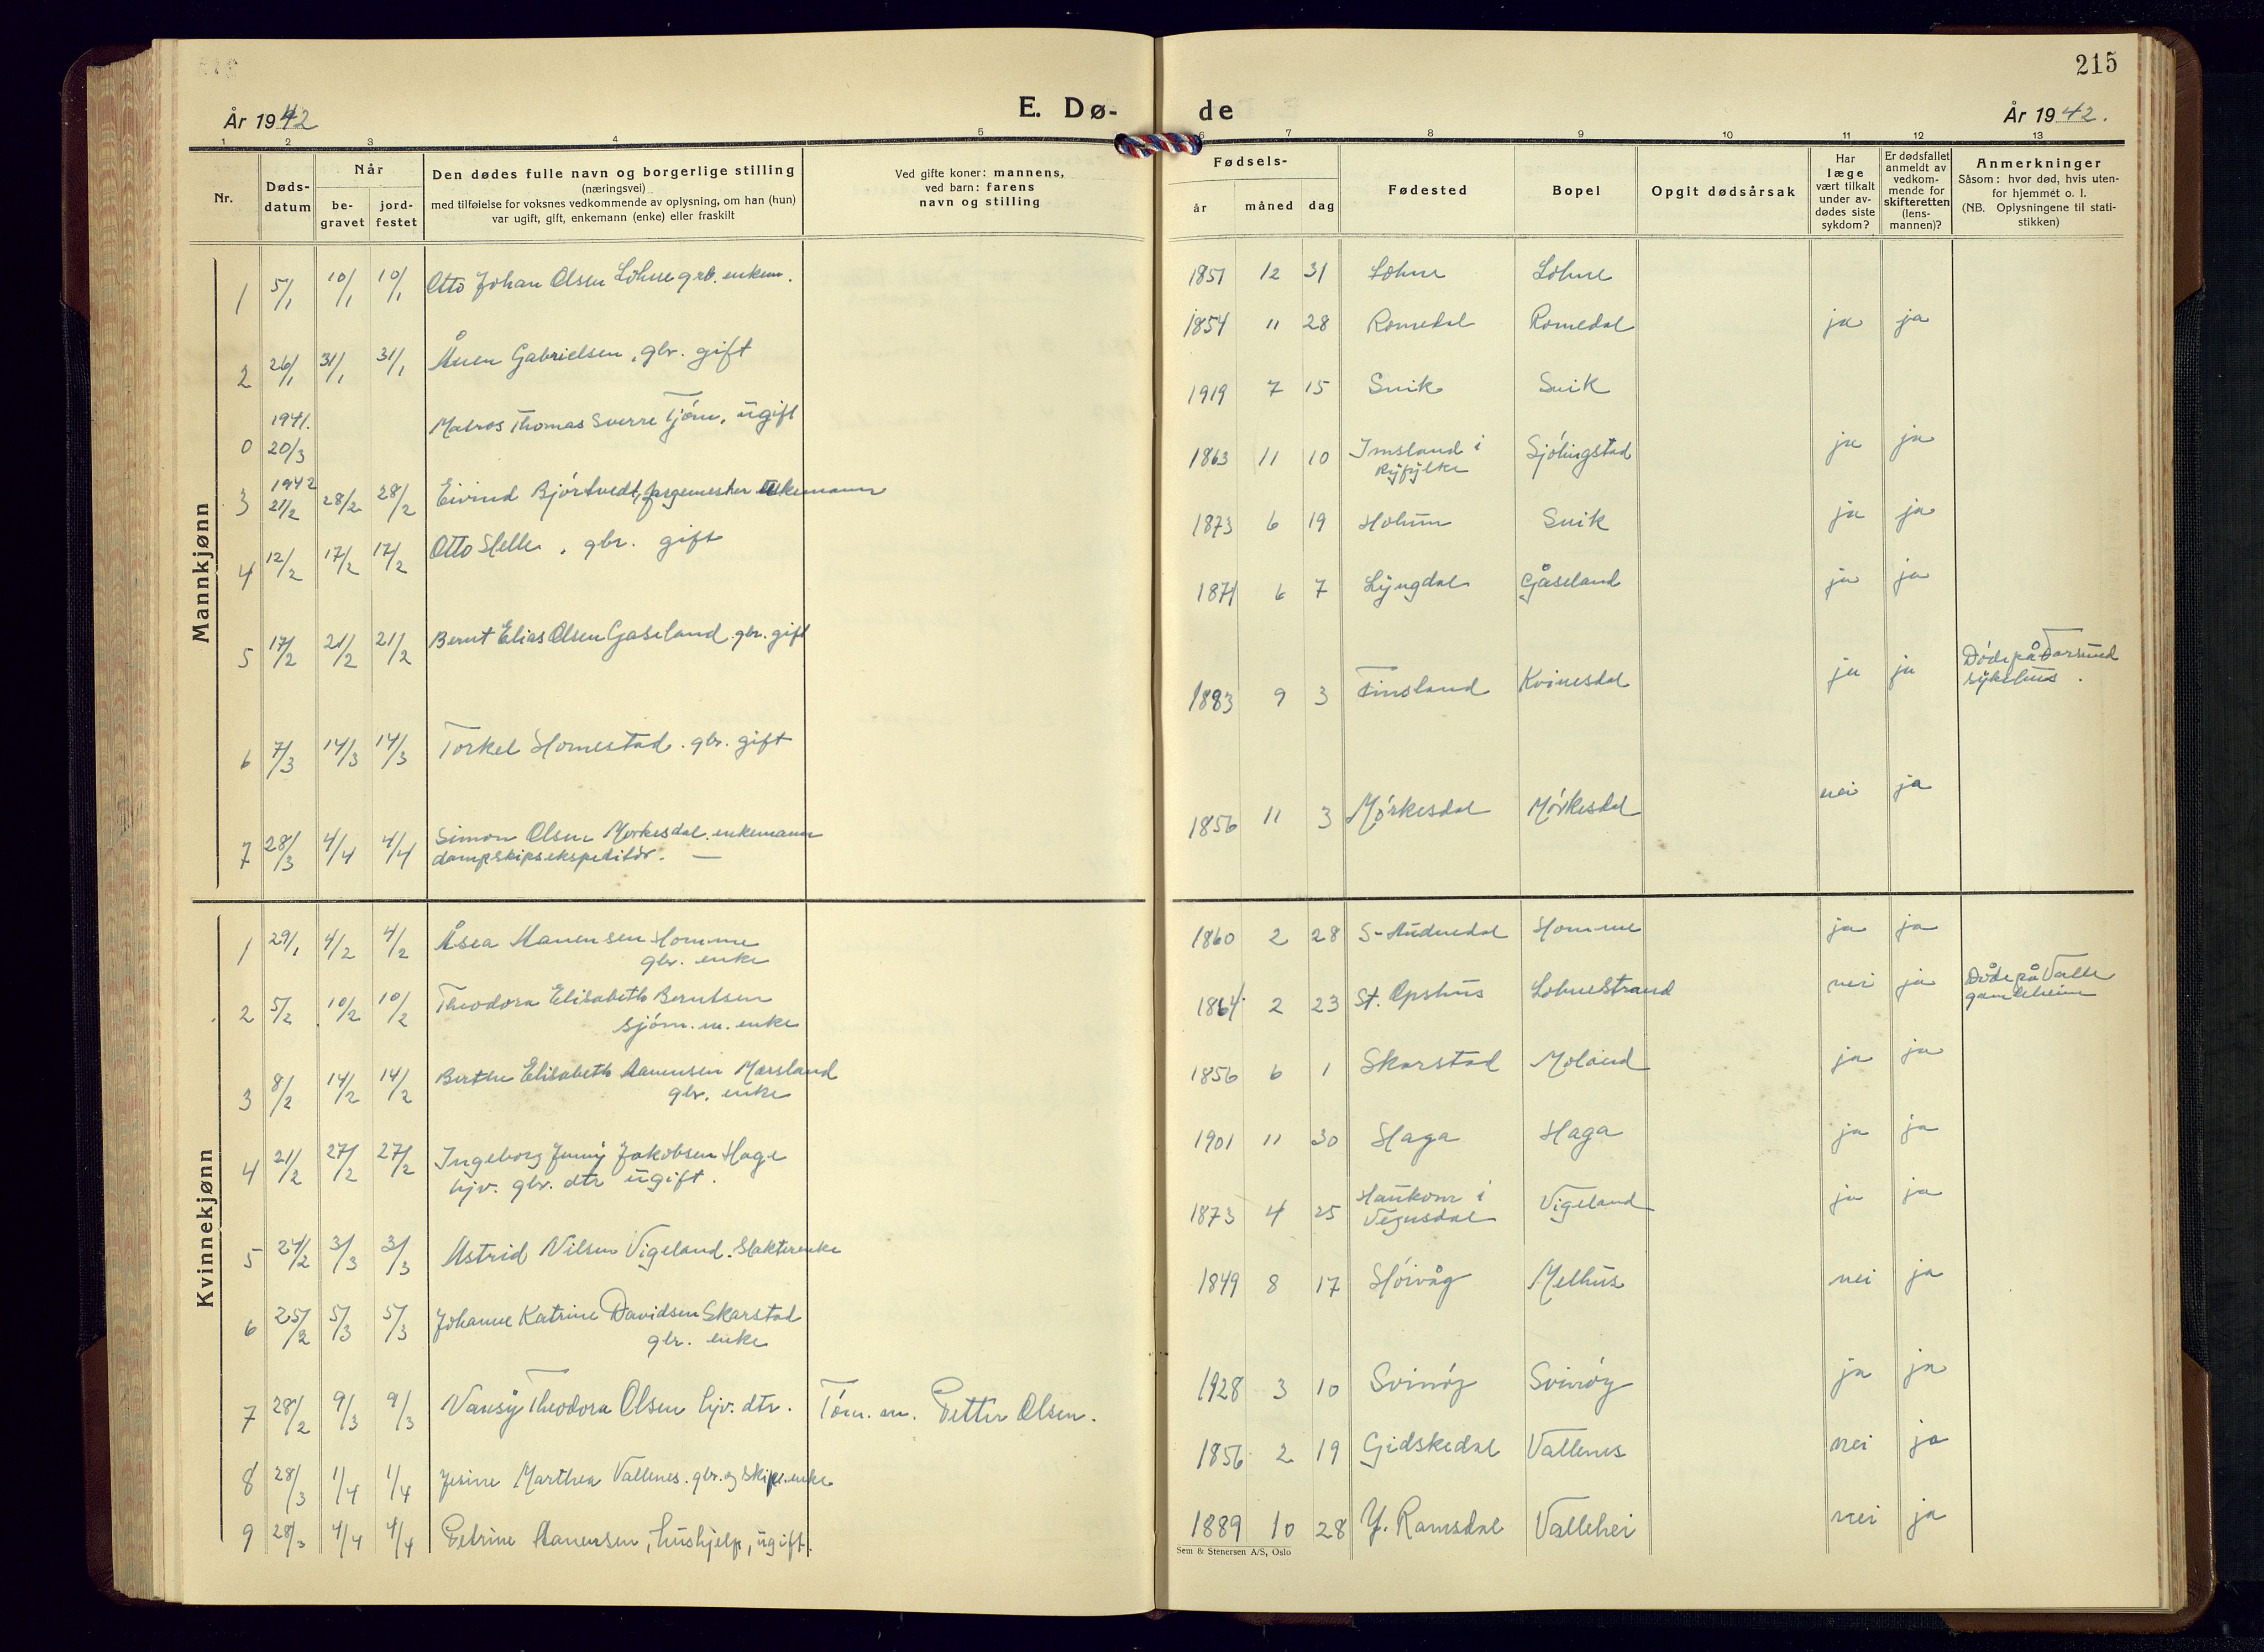 215
År 1942
E. Dø-
de
År 1942.
1 2 3 4 5 6 7 8 9 10 11 12 13
Nr.
Døds-
datum
Når
be-
gravet
jord-
festet
Den dødes fulle navn og borgerlige stilling
(næringsvei)
med tilføielse for voksnes vedkommende av oplysning, om han (hun)
var ugift, gift, enkemann (enke) eller fraskilt
Ved gifte koner: mannens,
ved barn: farens
navn og stilling
Fødsels-
år måned dag
Fødested
Bopel
Opgit dødsårsak
Har
læge
vært tilkalt
under av-
dødes siste
sykdom?
Er dødsfallet
anmeldt av
vedkom-
mende for
skifteretten
(lens-
mannen)?
Anmerkninger
Såsom: hvor død, hvis uten-
for hjemmet o. l.
(NB. Oplysningene til stati-
stikken)
Mannkjønn
1 5/1 10/1 10/1 Otto Johan Olsen Lohne grb. enkem. 1851 12 31 Lohne Lohne
2 26/1 31/1 31/1 Ånen Gabrielsen, gbr. gift 1854 11 28 Romedal Romedal ja ja
1941.
0 20/3 Matros Thomas Sverre Tjóm, ugift 1919 7 15 Snik Snik
1942
3 21/2 28/2 28/2 Eivind Bjórtvedt, fargemester enkemann 1863 11 10 Imsland i Sjólingstad ja ja
Ryfylke
4 12/2 17/2 17/2 Otto Helle, gbr. gift 1873 6 19 Holum Snik ja ja
5 17/2 21/2 21/2 Bernt Elias Olsen Gaseland. gbr. gift 1871 6 7 Lyngdal Gåseland ja ja
6 7/3 14/3 14/3 Torkel Homestad. gbr. gift 1883 9 3 Tinsland Kvinesdal ja ja Døde på Farsund
sykehus.
7 28/3 4/4 4/4 Simon Olsen Mørkesdal. enkemann 1856 11 3 Mórkesdal Mórkesdal nei ja
dampskipsekspeditór. —
Kvinnekjønn
1 29/1 4/2 4/2 Åsea Hanensen Homme 1860 2 28 S-Audnedal Homme ja ja
gbr. enke
2 5/2 10/2 10/2 Theodora Elisabeth Berntsen 1864 2 23 St. Opshus Lohnestrand nei ja Døde på Valle
sjóm. m. enke gamleheim
3 8/2 14/2 14/2 Berthe Elisabeth Aanensen Møssland 1856 6 1 Skarstad Moland ja ja
gbr. enke
4 21/2 27/2 27/2 Ingeborg Jenny Jakobsen Hage 1901 11 30 Haga Haga ja ja
hjv. gbr. dtr ugift.
5 24/2 3/3 3/3 Astrid Nilsen Vigeland. Slakterenke 1873 4 25 Haukom i Vigeland ja ja
Vegusdal
6 25/2 5/3 5/3 Johanne Katrine Davidsen Skarstad 1849 8 17 Hóivåg Melhus nei ja
gbr. enke
7 28/2 9/3 9/3 Vansy Theodora Olsen hjv. dtr. Tóm. m. Petter Olsen. 1928 3 10 Svinóy Svinóy ja ja
8 28/3 1/4 1/4 Jesine Marthea Vallenes. gbr. og skipp. enke 1856 2 19 Gidskedal Vallenes nei ja
9 28/3 4/4 4/4 Petrine Aanensen, hushjelp, ugift. 1889 10 28 Y. Ramsdal Vallehei nei ja
Sem & Stenersen A/S, Oslo